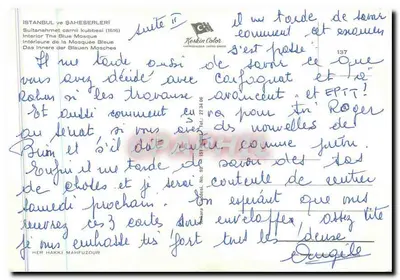 İSTANBUL ve ŞAHESERLERİ
Sultanahmet camii kubbesi (1616)
Interior The Blue Mosque
Intérieure de la Mosquée Bleue
Das Innere der Blauen Moschee
Suite II
Keskin Color
137
il me tarde de savoir
comment cet examen
s'est passé.
Il me tarde aussi de savoir ce que
vous avez décidé avec et à
si les travaux avancent et EPTT!
Et aussi comment ça va pour toi Roger
au si vous avez des nouvelles de
et s'il doit comme
Enfin il me tarde de savoir des tas
de choses et je serai contente de rentrer
samedi prochain. En espérant que vous
recevrez ces 3 cartes sous enveloppes, assez vite
je vous embrasse très fort tous les deux
Angèle
HER HAKKI MAHFUZDUR